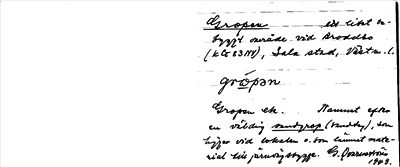 Gropen ett litet om-
byggt område vid Broddbo
Sala stad, Västm. l.
grópən
Gropen ek. Namnet efter
en väldig sandgrop som
ligger vid lokalen o. som lämnat mate-
rial till järnvägsbygge. G.
1943.